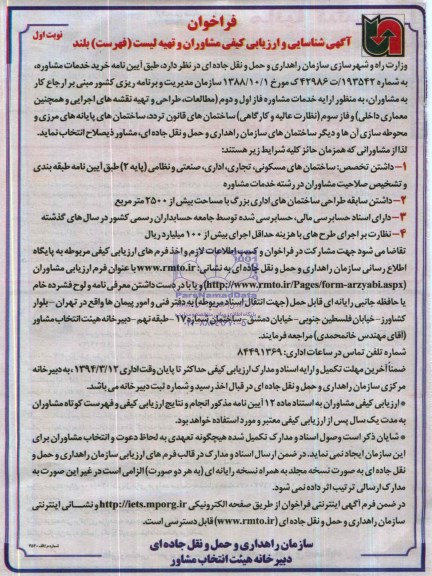 فراخوان
نوبت اول
آگهی شناسایی و ارزیابی کیفی مشاوران و تهیه لیست (فهرست) بلند
وزارت راه و شهرسازی سازمان راهداری و حمل و نقل جاده ای در نظر دارد، طبق آیین نامه خرید خدمات مشاوره،
به شماره ۱۹۳۵۴۲/ت ۴۲۹۸۶ ک مورخ ۱۳۸۸/۱۰/۱ سازمان مدیریت و برنامه ریزی کشور مبنی بر ارجاع کار
به مشاوران، به منظور ارایه خدمات مشاوره فاز اول و دوم (مطالعات، طراحی و تهیه نقشه های اجرایی و همچنین
معماری داخلی) و فاز سوم (نظارت عالیه و کارگاهی) ساختمان های قانون تردد، ساختمان های پایانه های مرزی و
محوطه سازی آن ها و دیگر ساختمان های سازمان راهداری و حمل و نقل جاده ای، مشاور ذیصلاح انتخاب نماید.
لذا از مشاورانی که همزمان حائز کلیه شرایط زیر هستند:
۱- داشتن تخصص: ساختمان های مسکونی، تجاری، اداری، صنعتی و نظامی (پایه ۲) طبق آیین نامه طبقه بندی
و تشخیص صلاحیت مشاوران در رشته خدمات مشاوره
۲- داشتن سابقه طراحی ساختمان های اداری بزرگ با مساحت بیش از ۲۵۰۰ متر مربع
۳- دارای اسناد حسابرسی مالی، حسابرسی شده توسط جامعه حسابداران رسمی کشور در سال های گذشته
۴- نظارت بر اجرای طرح های با هزینه حداقل اجرای بیش از ۱۰۰ میلیارد ریال
تقاضا می شود جهت مشارکت در فراخوان و کسب اطلاعات لازم و اخذ فرم های ارزیابی کیفی مربوطه به پایگاه
اطلاع رسانی سازمان راهداری و حمل و نقل جاده ای به نشانی: www.rmto.ir با عنوان فرم ارزیابی مشاوران
(http://www.rmto.ir/Pages/form-arzyabi.aspx) و یا با در دست داشتن معرفی نامه و لوح فشرده خام
یا حافظه جانبی رایانه ای قابل حمل (جهت انتقال اسناد مربوطه) به دفتر فنی و امور پیمان ها واقع در تهران- بلوار
کشاورز- خیابان فلسطین جنوبی- خیابان دمشق- ساختمان شماره ۱۷- طبقه نهم- دبیرخانه هیئت انتخاب مشاور
(آقای مهندس خانمحمدی) مراجعه فرمایند.
شماره تلفن تماس در ساعات اداری: ۸۴۴۹۱۳۶۹
ضمناً آخرین مهلت تکمیل و ارایه اسناد و مدارک ارزیابی کیفی حداکثر تا پایان وقت اداری ۱۳۹۴/۳/۱۲، به دبیرخانه
مرکزی سازمان راهداری و حمل و نقل جاده ای در قبال اخذ رسید و شماره ثبت دبیرخانه می باشد.
* ارزیابی کیفی مشاوران به استناد ماده ۱۲ آیین نامه مذکور انجام و نتایج ارزیابی کیفی و فهرست کوتاه مشاوران
به مدت یک سال پس از ارزیابی کیفی معتبر و مورد استفاده خواهد بود.
* شایان ذکر است وصول اسناد و مدارک تکمیل شده هیچگونه تعهدی به لحاظ دعوت و انتخاب مشاوران برای
این سازمان ایجاد نمی نماید. در ضمن ارسال اسناد و مدارک در قالب فرم های ارزیابی سازمان راهداری و حمل و
نقل جاده ای به صورت نسخه مجلد به همراه نسخه رایانه ای (به هر دو صورت) الزامی است در غیر این صورت به
مدارک ارسالی ترتیب اثر داده نمی شود.
در ضمن فرم آگهی اینترنتی فراخوان از طریق صفحه الکترونیکی http://iets.mporg.ir و نشانی اینترنتی
سازمان راهداری و حمل و نقل جاده ای (www.rmto.ir) قابل دسترسی است.
سازمان راهداری و حمل و نقل جاده ای
دبیرخانه هیئت انتخاب مشاور
ParsNamadData